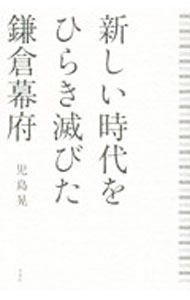 新しい時代を
ひらき滅びた
鎌倉幕府
児島晃